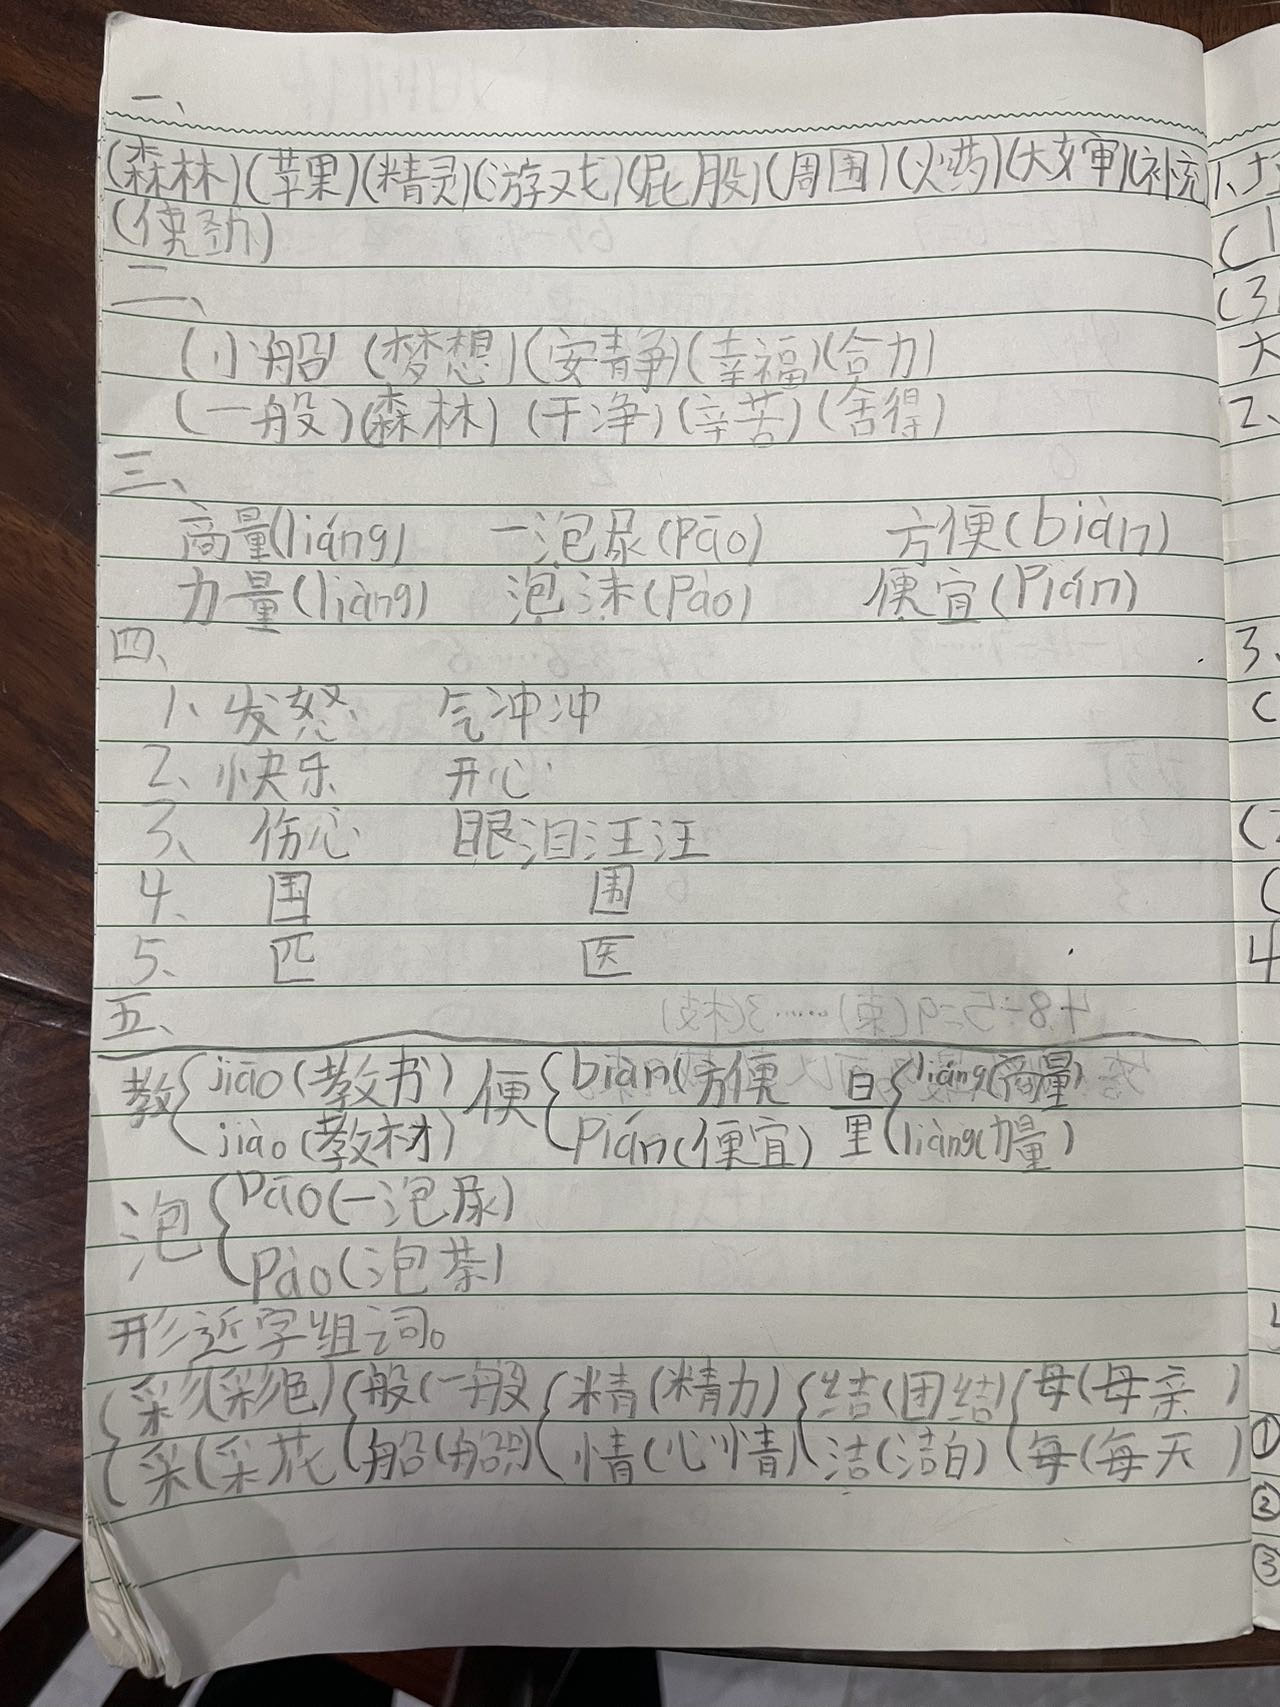 一、
(森林)(苹果)(精灵)(游戏)(屁股)(周围)(火药)(大婶)(补充)
(使劲)
二、
(小船)(梦想)(安静)(幸福)(合力)
(一般)(森林)(干净)(辛苦)(舍得)
三、
商量(liáng) 一泡尿(Pāo) 方便(biàn)
力量(liàng) 泡沫(Pào) 便宜(Pián)
四、
1、发怒 气冲冲
2、快乐 开心
3、伤心 眼泪汪汪
4、国 围
5、匹 医
五、
教{jiāo(教书) 便{biàn(方便 量{liáng(商量)
jiào(教材) Pián(便宜) liàng(力量)
泡{Pāo(一泡尿)
Pào(泡茶)
形近字组词。
{彩(彩色){般(一般{精(精力){结(团结){母(母亲)
采(采花 船(船 情(心情)洁(洁白)每(每天)
1、
(1
(3
大
2、
3、
(
(2
(
4
①
②
③